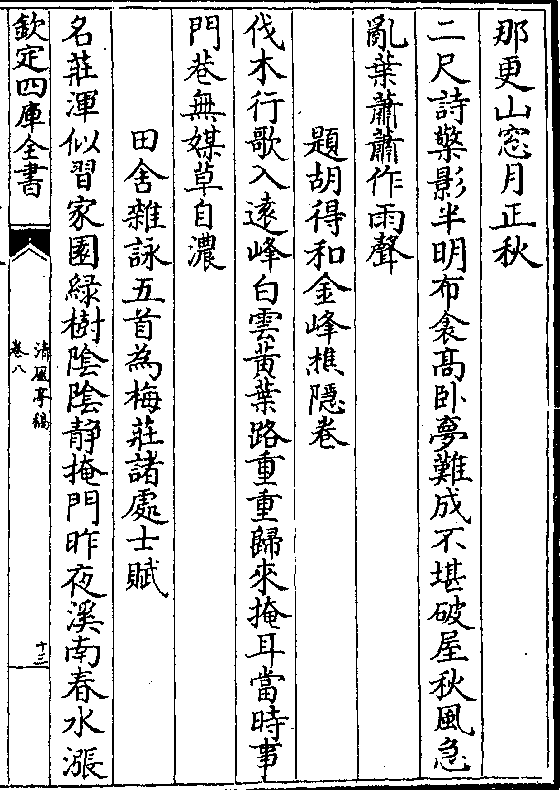 那更山窓月正秋
二尺詩檠影半明布衾髙卧夢難成不堪破屋秋風急
亂葉蕭蕭作雨聲
題胡得和金峰樵隱卷
伐木行歌入逺峰白雲黄葉路重重歸來掩耳當時事
門巷無媒草自濃
田舍雜詠五首為梅莊諸處士賦
名莊渾似習家園緑樹隂隂靜掩門昨夜溪南春水漲
欽定四庫全書
清風亭稿
卷八
十三